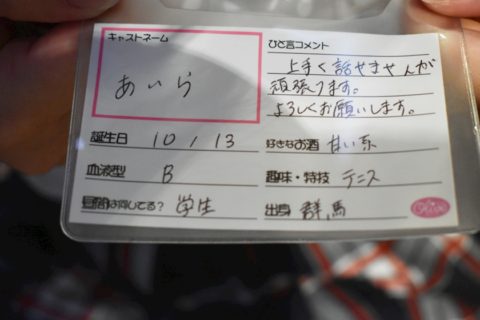 キャストネーム
あいら
ひと言コメント
上手く話せませんが
頑張ってます。
よろしくお願いします。
誕生日 10 / 13
好きなお酒 甘い系
血液型 B
趣味・特技 テニス
昼間は何してる? 学生
出身 群馬